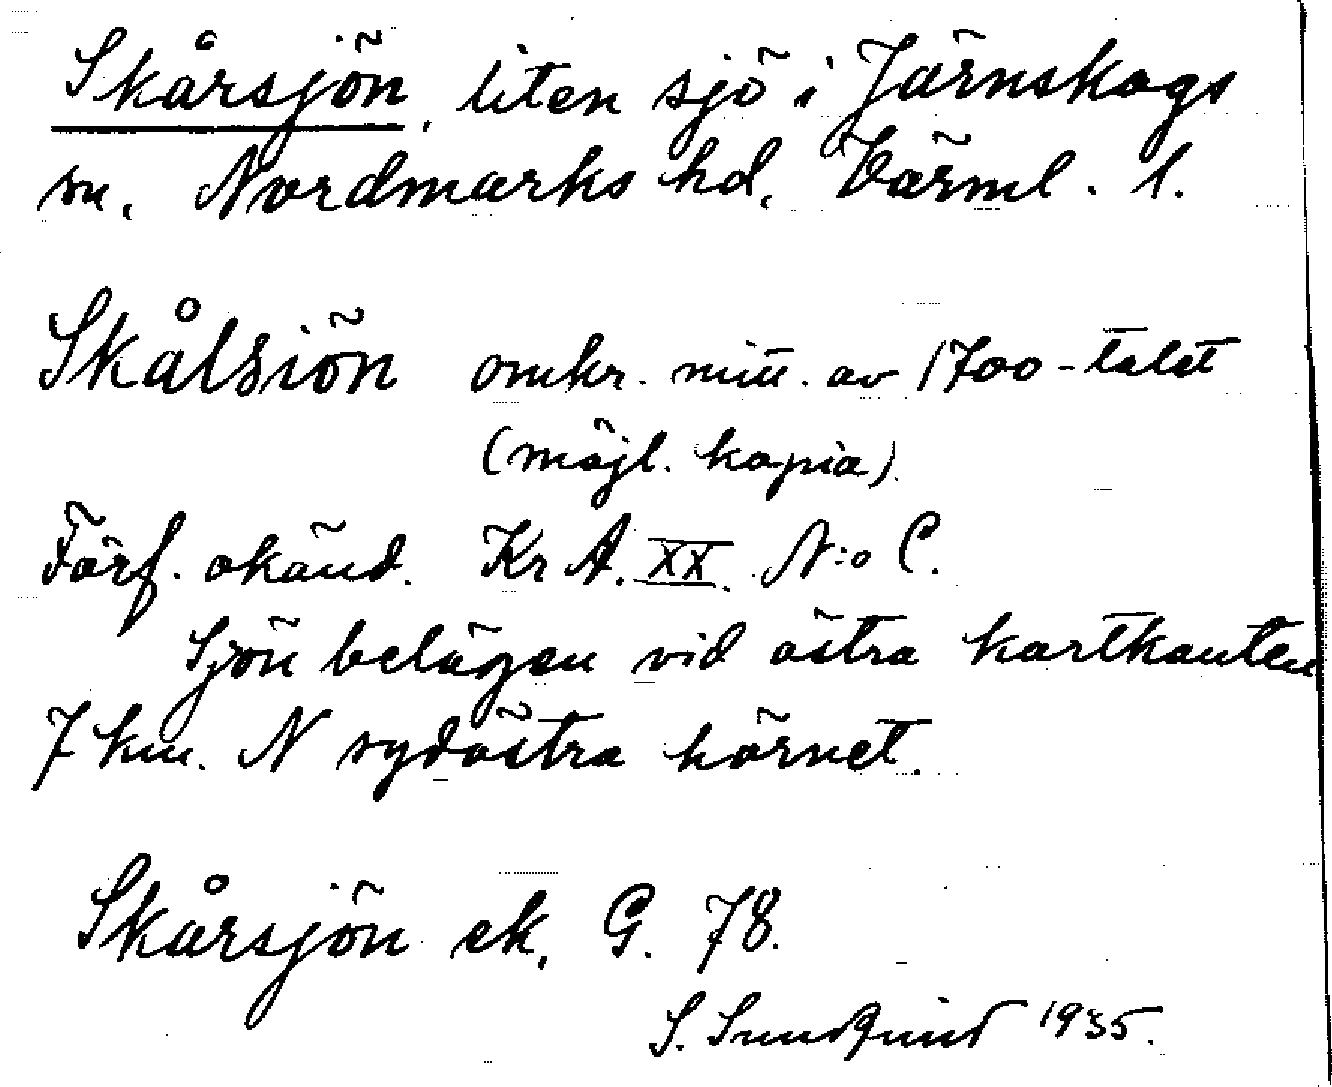 Skårsjön, liten sjö i Järnskogs
sn, Nordmarks hd, Värml. l.
Skålsiön omkr. mitt. av 1700-talet
(möjl. kopia).
Förf. okänd. Kr A. XX. N:o C.
Sjön belägen vid östra kartkanten
7 km. N sydöstra hörnet.
Skårsjön ek. G. 78.
S. Sundquist 1935.